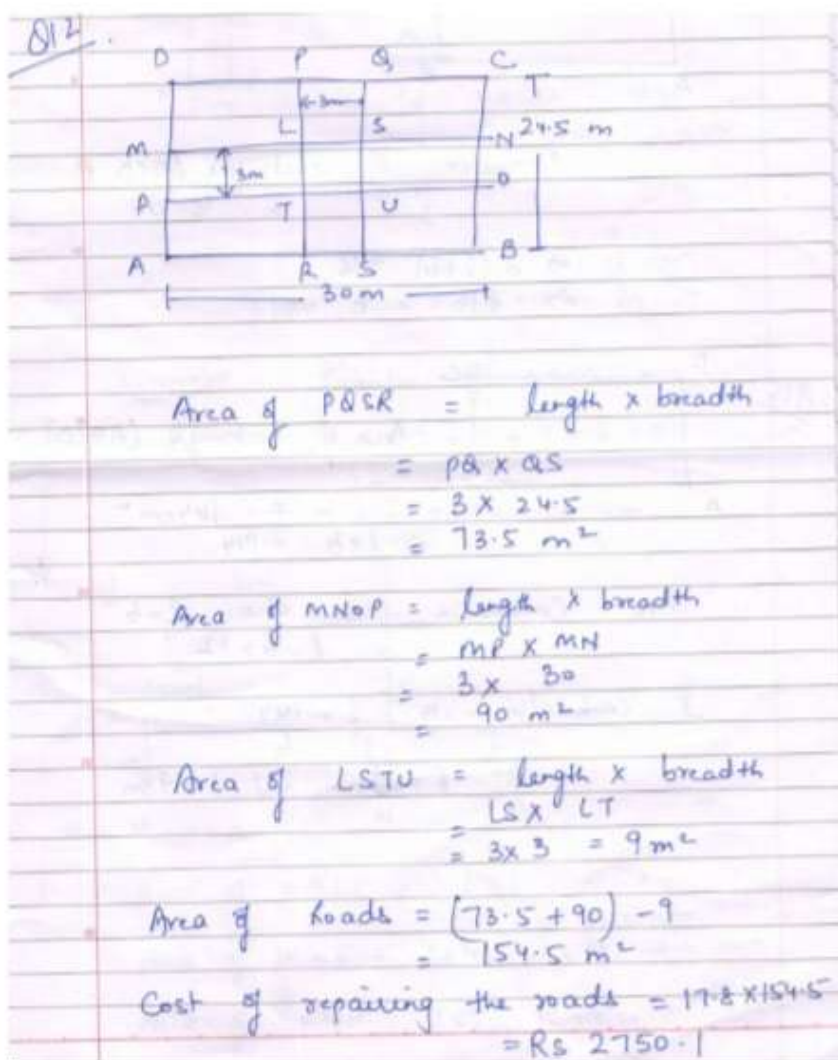 Q12.
D P Q C T
3m
L S N 24.5 m
M
3m
P T U O
A R S B
30m
Area of PQSR = length × breadth
= PQ × QS
= 3 × 24.5
= 73.5 m²
Area of MNOP = length × breadth
= MP × MN
= 3 × 30
= 90 m²
Area of LSTU = length × breadth
= LS × LT
= 3×3 = 9 m²
Area of Roads = (73.5 + 90) - 9
= 154.5 m²
Cost of repairing the roads = 17.8 × 154.5
= Rs 2750.1